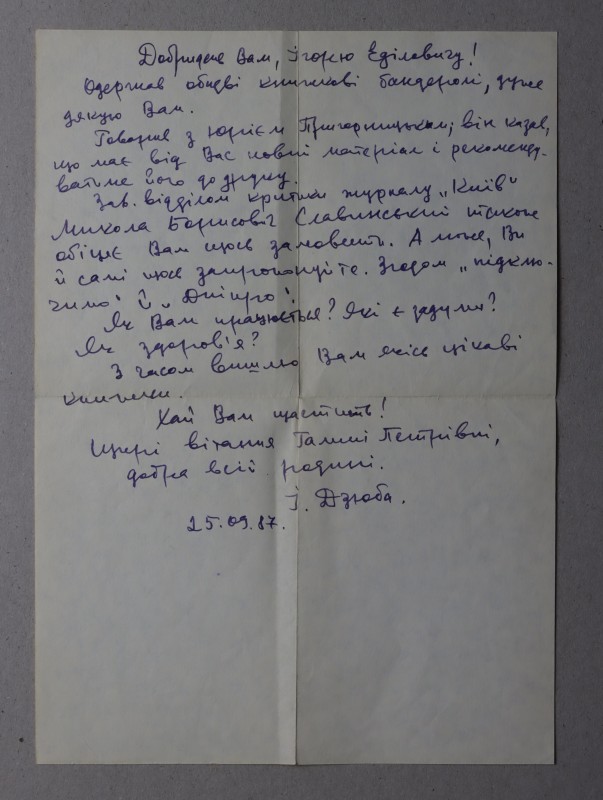 Добридень Вам, Ігорю Еділовичу!
Одержав обидві книжкові бандеролі, дуже
дякую Вам.
Говорив з Юрієм Пригорницьким; він казав,
що має від Вас новий матеріал і рекоменду-
ватиме його до друку.
Зав. відділом критики журналу „Київ“
Микола Борисович Славинський також
обіцяє Вам щось замовити. А може, Ви
й самі щось запропонуйте. Згодом „підклю-
чимо“ й „Дніпро“.
Як Вам працюється? Які є задуми?
Як здоров'я?
З часом вишлю Вам якісь цікаві
книжки.
Хай Вам щастить!
Щирі вітання Галині Петрівні,
добра всій родині.
І. Дзюба.
25.09.87.